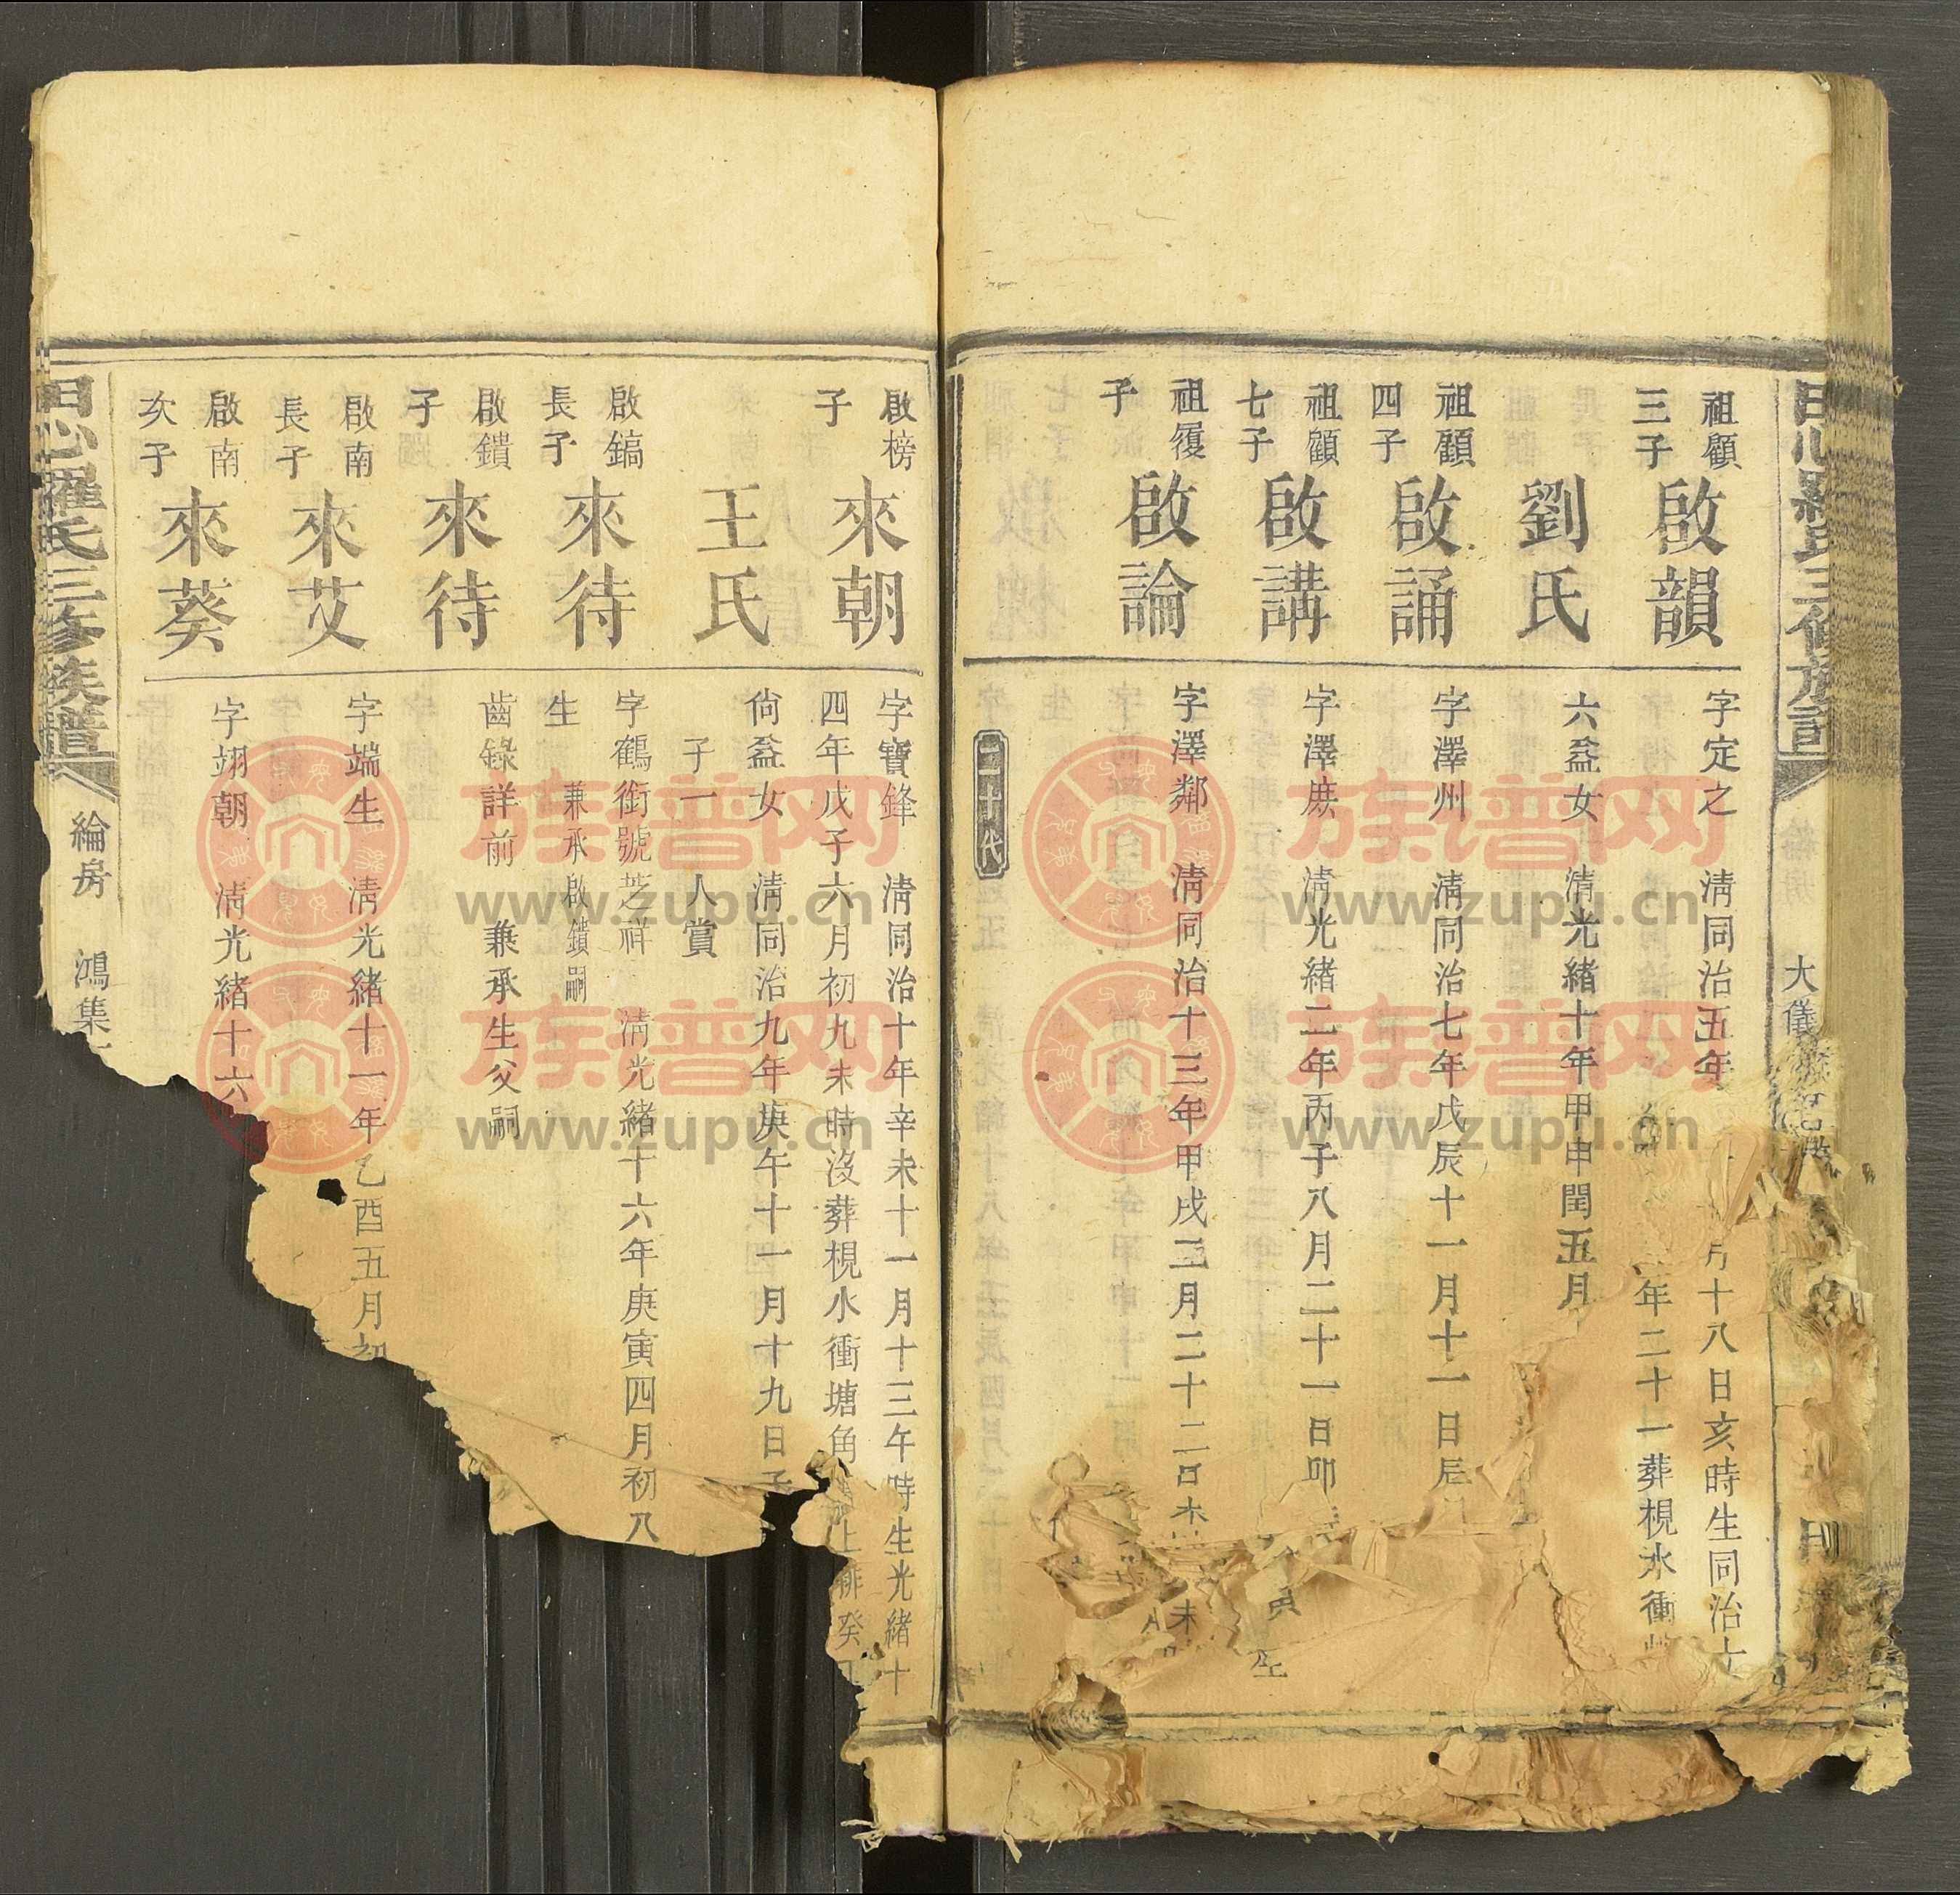 大儀
祖顧三子
啟韻
字定之 清同治五年
月十八日亥時生同治十
年二十一葬梘水衝
劉氏
六益女 清光緒十年甲申閏五月
祖顧四子
啟誦
字澤州 清同治七年戊辰十一月十一日辰
祖顧七子
啟講
字澤庶 清光緒二年丙子八月二十一日卯
祖履子
啟論
字澤鄰 清同治十三年甲戌三月二十二日未
二十代
啟榜子
來朝
字寶鋒 清同治十年辛未十一月十三午時生光緒十
四年戊子六月初九未時沒葬梘水衝塘角
王氏
尙益女 清同治九年庚午十一月十九日子
子一 人賞
啟鎬長子
來待
字鶴銜號芝祥 清光緒十六年庚寅四月初八
生 兼承啟鐀嗣
啟鐀子
來待
齒錄詳前 兼承生父嗣
啟南長子
來艾
字端生 清光緒十一年乙酉五月初
啟南次子
來葵
字翊朝 清光緒十六
田心羅氏三修族譜
綸房 鴻集
族谱网
www.zupu.cn
族谱网
www.zupu.cn
族谱网
www.zupu.cn
族谱网
www.zupu.cn